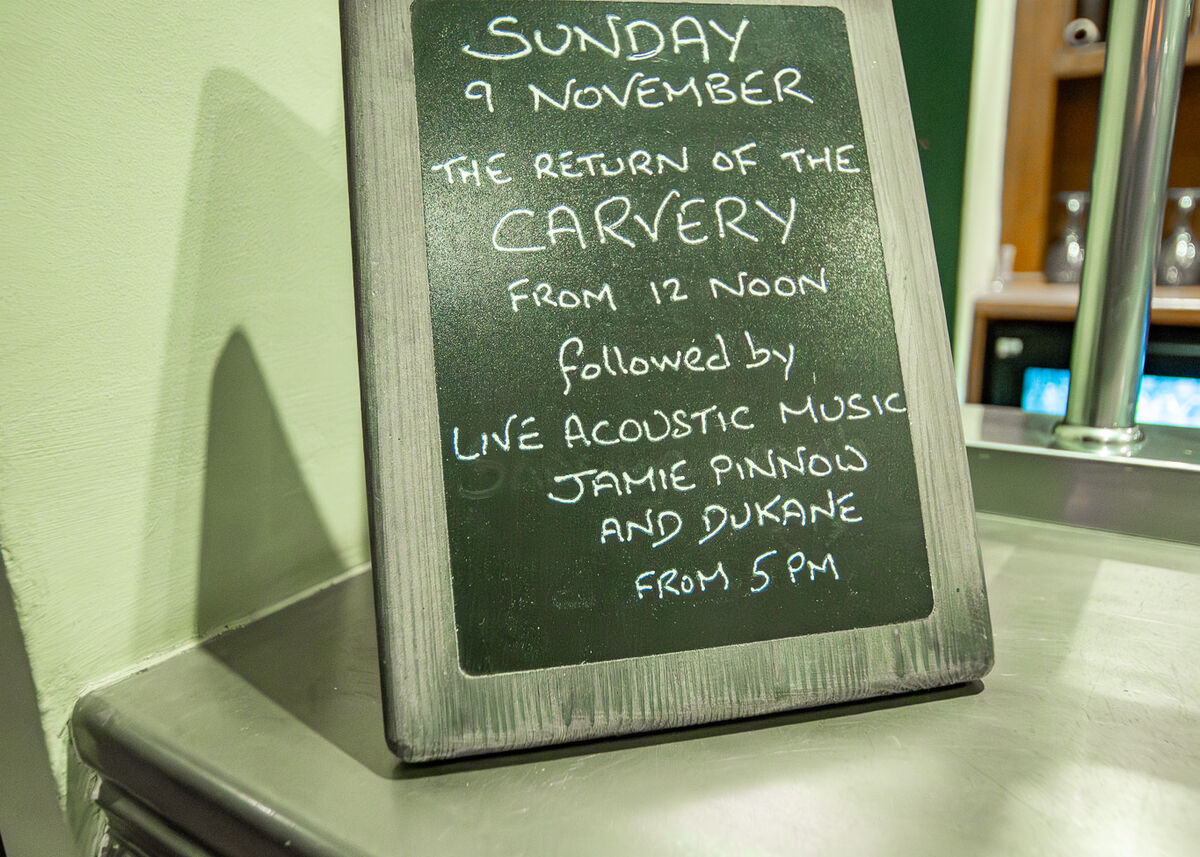 SUNDAY
9 NOVEMBER
THE RETURN OF THE
CARVERY
FROM 12 NOON
followed by
LIVE ACOUSTIC MUSIC
JAMIE PINNOW
AND DUKANE
FROM 5PM